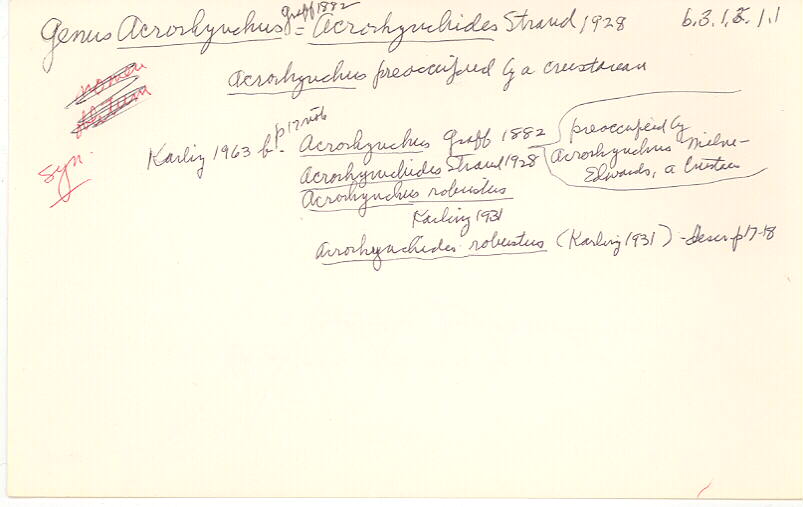 Genus Acrorhynchus Graff 1882 = Acrorhynchides Strand 1928 6.3.1.2.1.1
Acrorhynchus preoccupied by a crustacean
nomen
Syn.
Karling 1963 b - p 17 note Acrorhynchus Graff 1882
preoccupied by
Acrorhynchus Milne-
Edwards, a Crustacean
Acrorhynchides Strand 1928
Acrorhynchus robustus
Karling 1931
Acrorhynchides robustus (Karling 1931) - descr. p 17-18